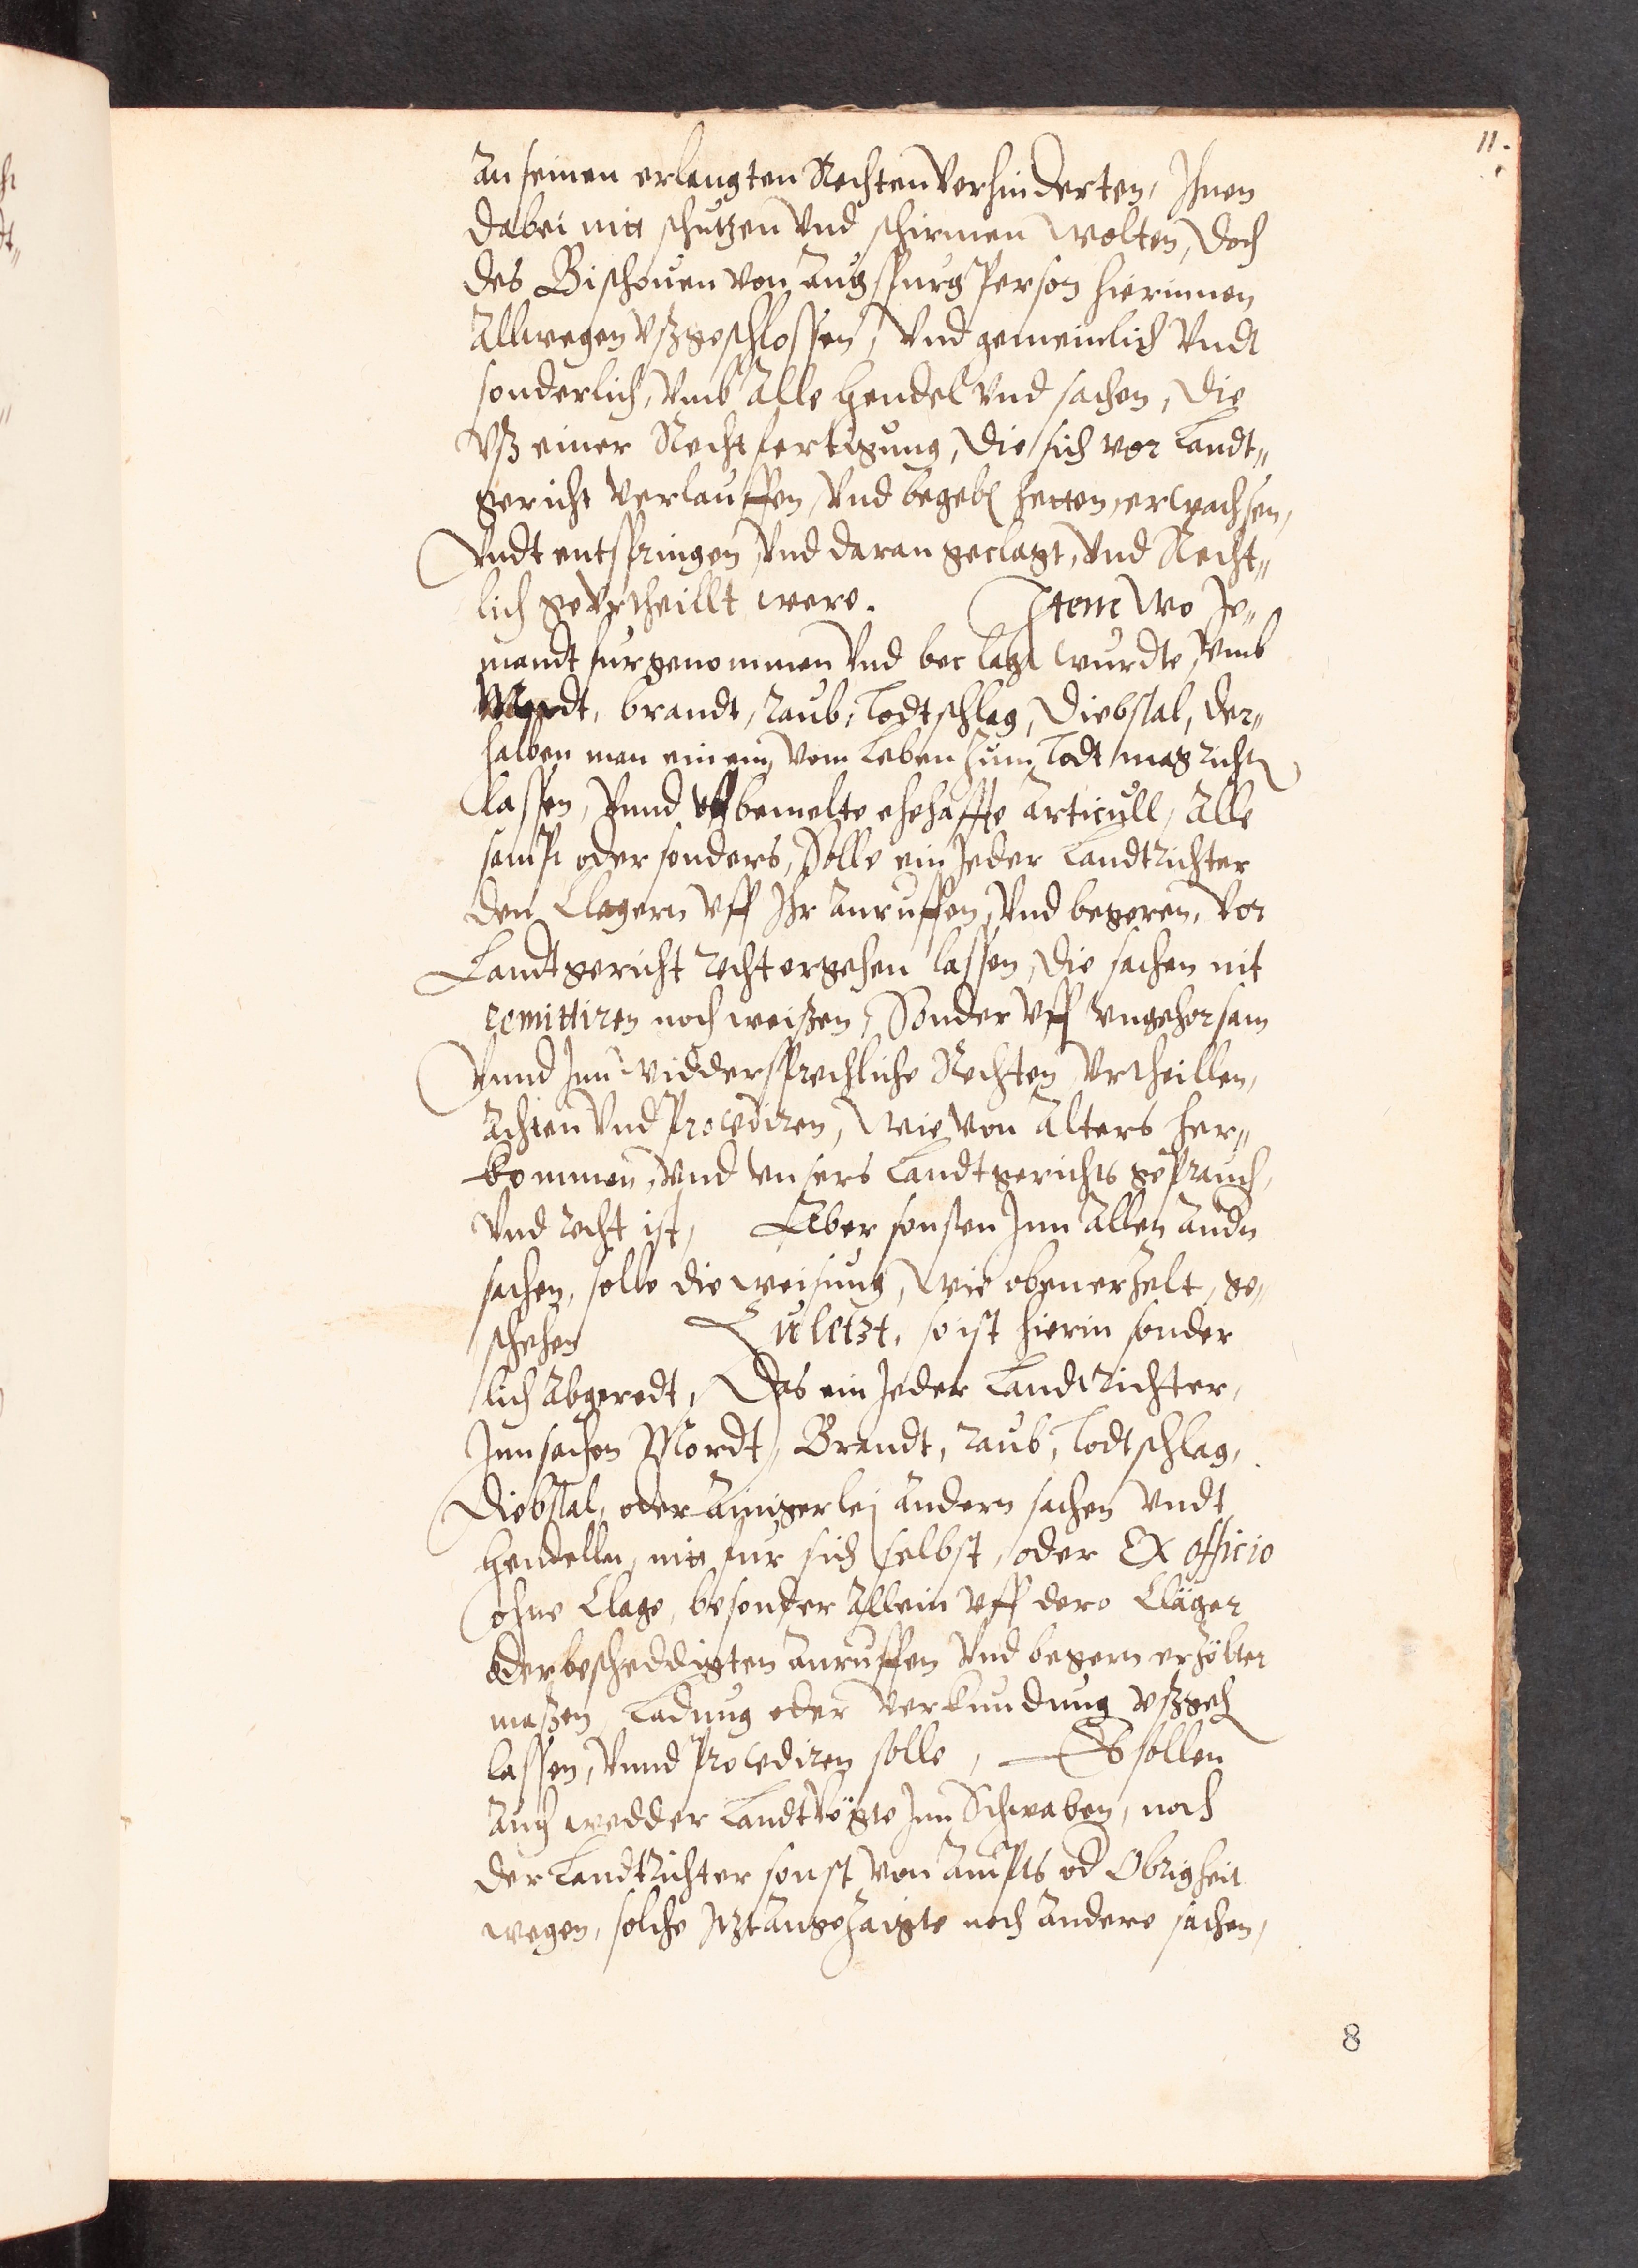 11.
An seinen erlangten Rechten verhinderten, Ihnen
dabei nit schutzen vnd schirmen wolten, doch
des Bischouen von Augspurg Person hierinnen
Allwegen vßgeschlossen, vnd gemeinlich vndt
sonderlich, vmb alle hendel vnd sachen, die
vß einer Rechtfertigung, die sich vor Landt„
gericht verlauffen, vnd begebē hetten, erwachsen,
vndt entspringen, vnd daran geclagt, vnd Recht„
lich geurtheillt were. Item wo Je„
mandt furgenommen vnd beclagt wurdte, vmb
Mordt, brandt, raub, Todtschlag, Diebstal, der„
halben man einem vom Leben zum Todt mag richtē
lassen, vnnd bemelte ehehaffte Articull, alle
sampt oder sonders, Solle ein Jeder Landtrichter
den Clagern vff Ihr anruffen, vnd begeren, vor
Landtgericht recht ergehen lassen, die sachen nit
remittiren noch weißen, Sonder vff vngehorsam
vnnd Inn widdersprechliche Rechten vrtheillen,
Achten vnd Procediren, wie von alters her„
kommen, vnd vnsers Landtgerichts geprauch,
vnd recht ist, Aber sonsten Inn allen andn
sachen, solle die weisung, wie oben erzelt, ge„
schehen Zuletzt, so ist hierin sonder
lich abgeredt, Das ein Jeder Landtrichter,
Inn sachen Mordt, Brandt, raub, Todtschlag,
Diebstal, oder ainigerlej andern sachen vndt
hendelln, nit fur sich selbst, oder Ex officio
ohne Clage, besonder allein vff dero Cläger
oder bescheddigten anruffen vnd begern erzölter
maßen, Ladung oder verkundung vßgeh
lassen, vnnd Procediren solle, Es sollen
auch wedder Landtvögte Inn Schwaben, noch
der Landtrichter sonst von ampts od Obrigheit
wegen, solche Jtzt angezaigte noch andere sachen,
8